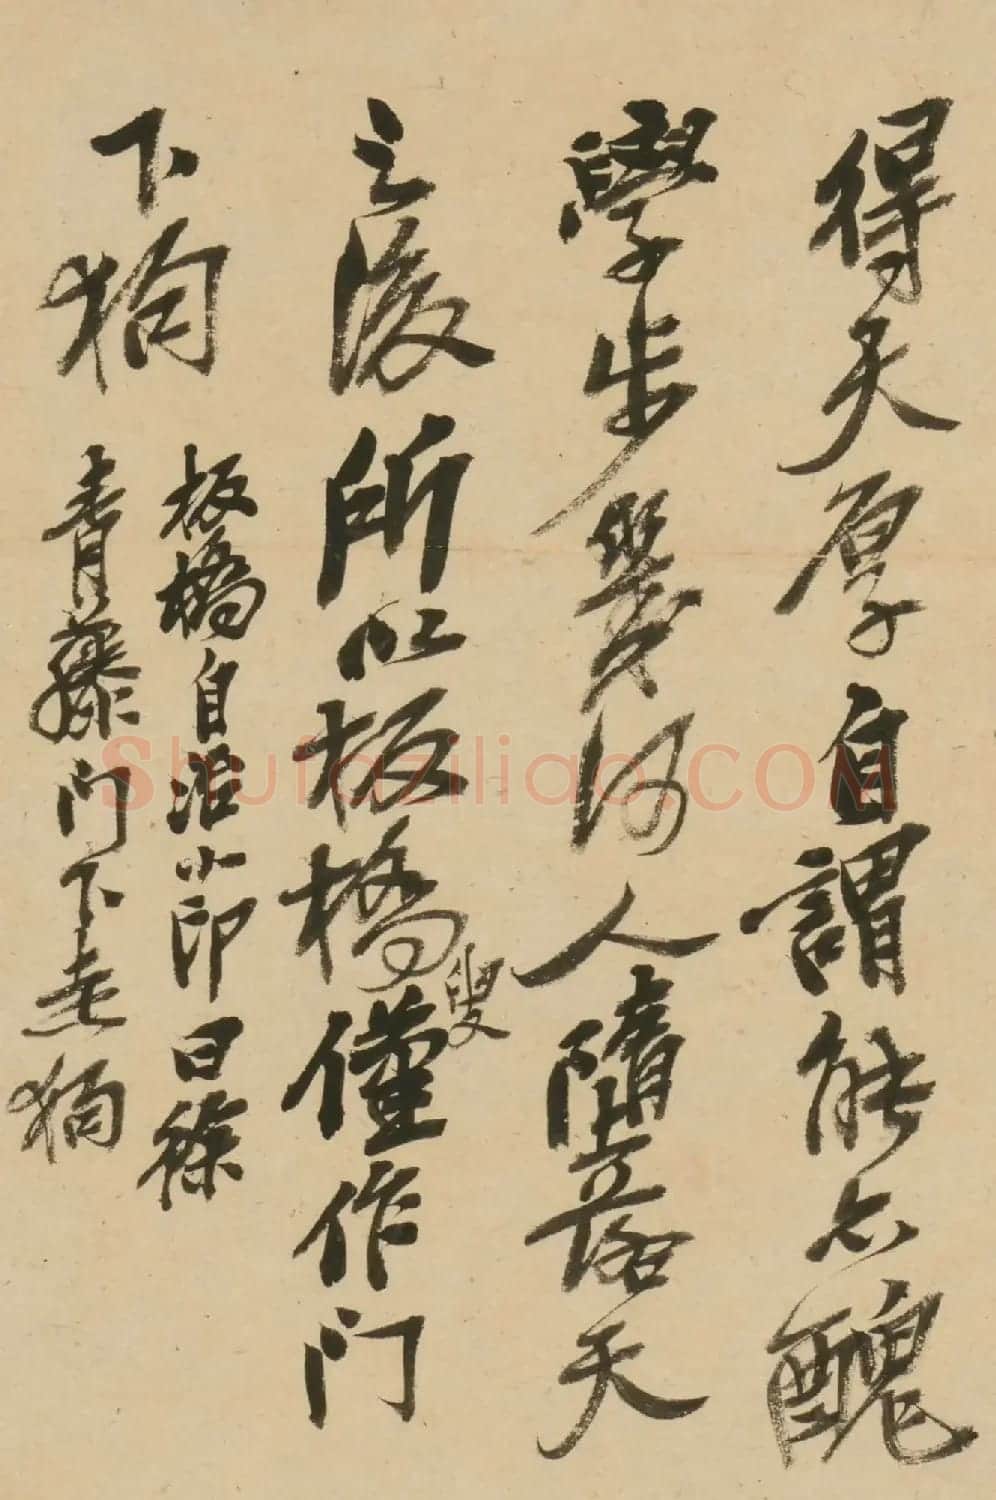 得天厚自謂能亦醜
學步幾何人墮落天
之後所以板橋叟僅作门
下狗
板橋自治小印曰徐
青藤门下走狗
Shufaziliao.COM